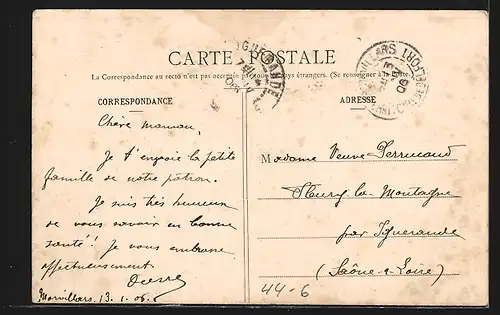 CARTE POSTALE
La Correspondance au recto n'est pas acceptée par tous les pays étrangers. (Se renseigner à la Poste.)
CORRESPONDANCE
ADRESSE
Chère maman,
Je t'envoie la petite
famille de notre patron.
Je suis très heureux
de vous savoir en bonne
santé! Je vous embrasse
affectueusement
Pierre
Morvillars 13.1.06.
Madame Veuve
Fleury la Montagne
par Iguerande
(Saône & Loire)
44-6
IGUERANDE
MORVILLARS